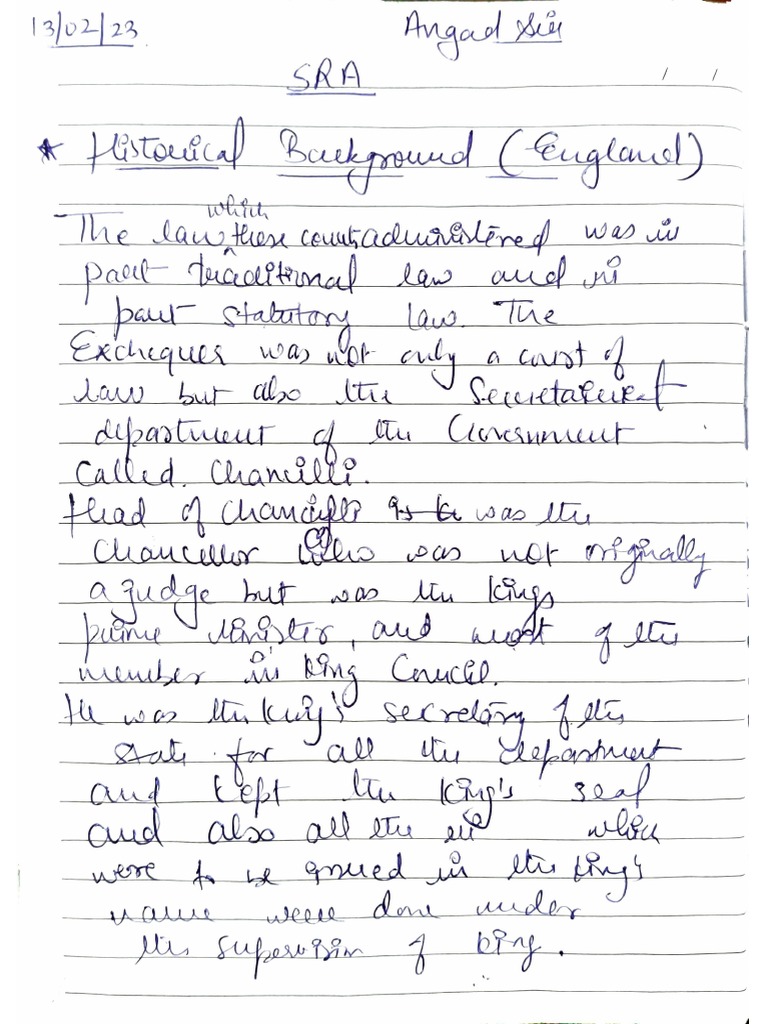 13/02/23
Angad Sir
SRA
* Historical Background (England)
which
- The law these courts administered was in
part traditional law and in
part statutory law. The
Exchequer was not only a court of
law but also the Secretarial
department of the Government
called. Chancilli.
Head of Chancilli is the was the
Chancellor who was not originally
a judge but was the kings
prime Minister, and most of the
member in king Council.
He was the king's secretary of the
state for all the department
and kept the king's seal
and also all the which
were to be issued in the king's
name were done under
the supervision of king.